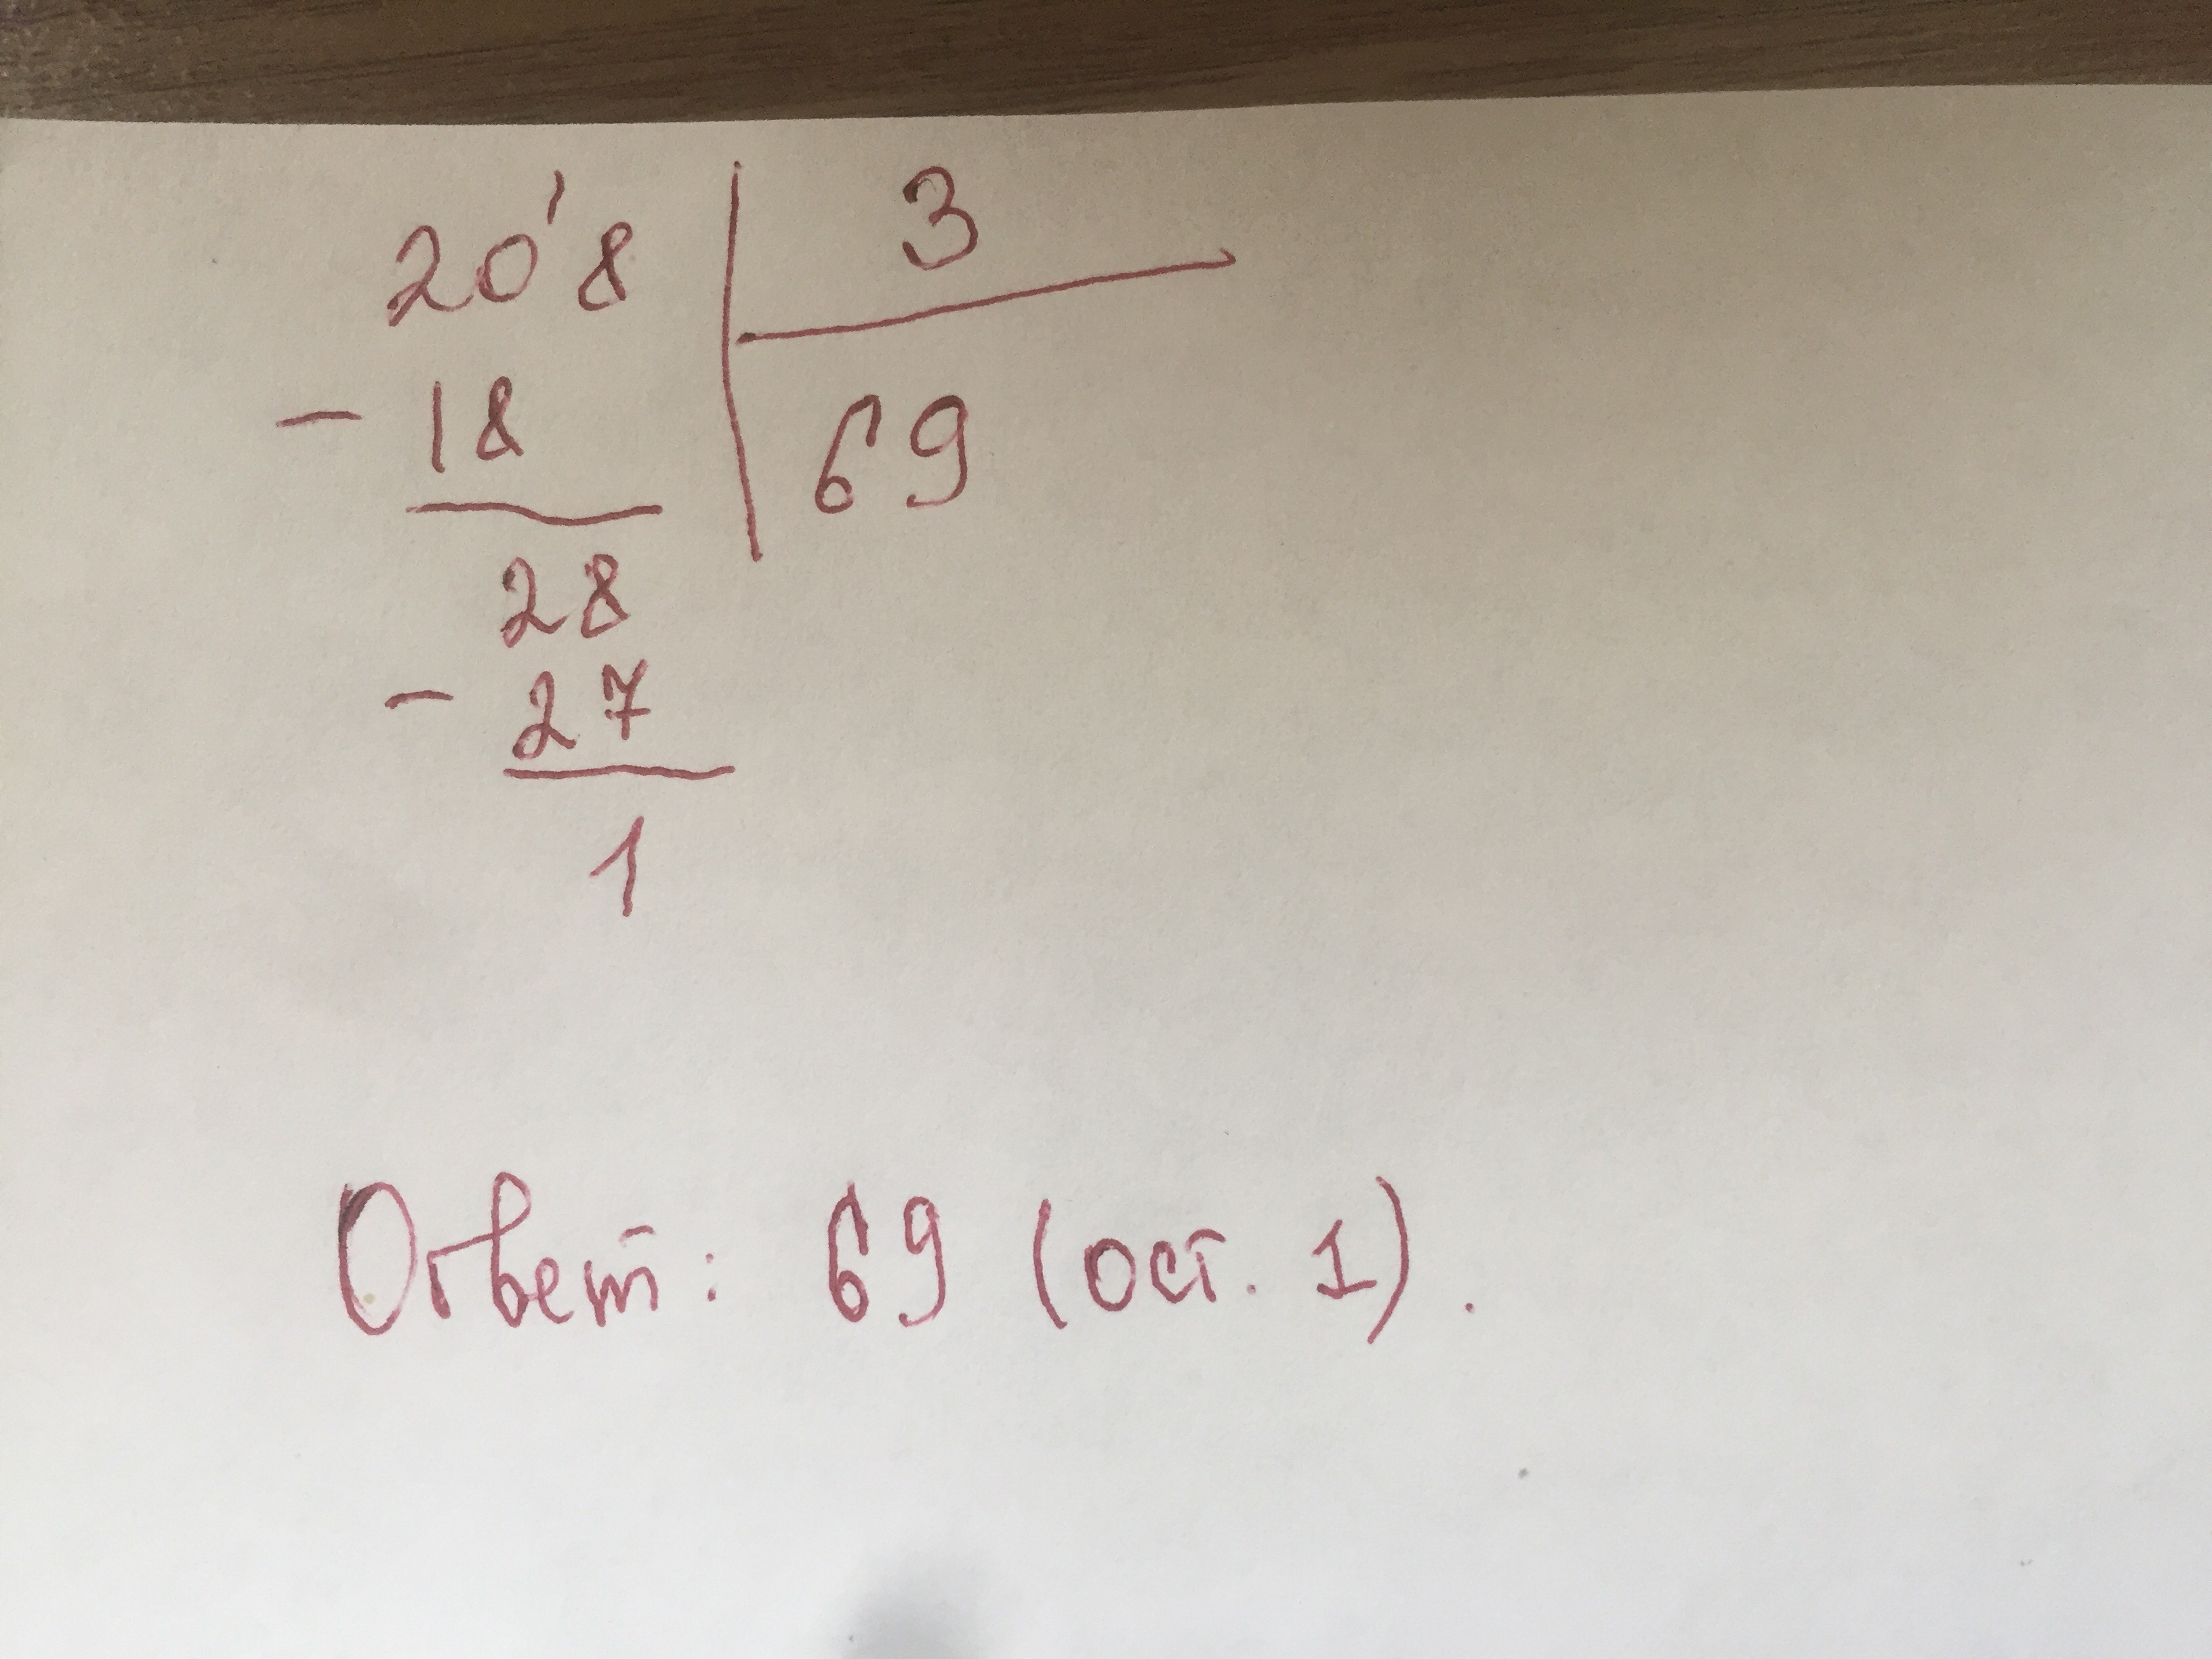 20'8 3
- 18 69
28
- 27
1
Ответ: 69 (ост. 1).